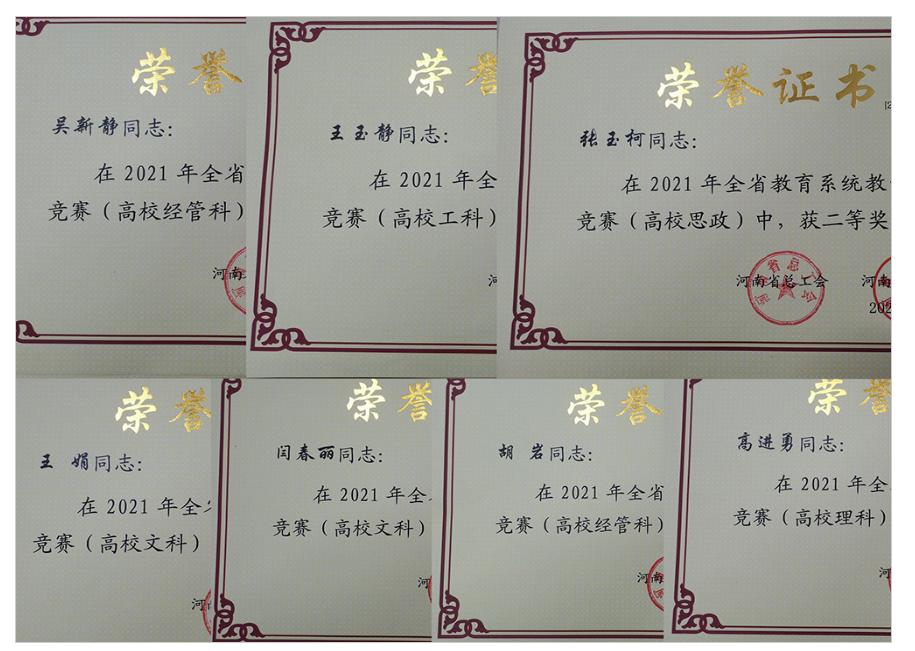 荣誉
吴新静同志：
在 2021 年全省
竞赛（高校经管科）
河南
荣誉
王玉静同志：
在 2021 年全
竞赛（高校工科）
河
荣誉证书
张玉柯同志：
在 2021 年全省教育系统教
竞赛（高校思政）中，获二等奖
河南省总工会 河南
202
荣誉
王 娟同志：
在 2021 年全
竞赛（高校文科）
河南
荣誉
闫春丽同志：
在 2021 年全
竞赛（高校文科）
河
荣誉
胡 岩同志：
在 2021 年全省
竞赛（高校经管科）
河南
荣誉
高进勇同志：
在 2021 年全
竞赛（高校理科）
河